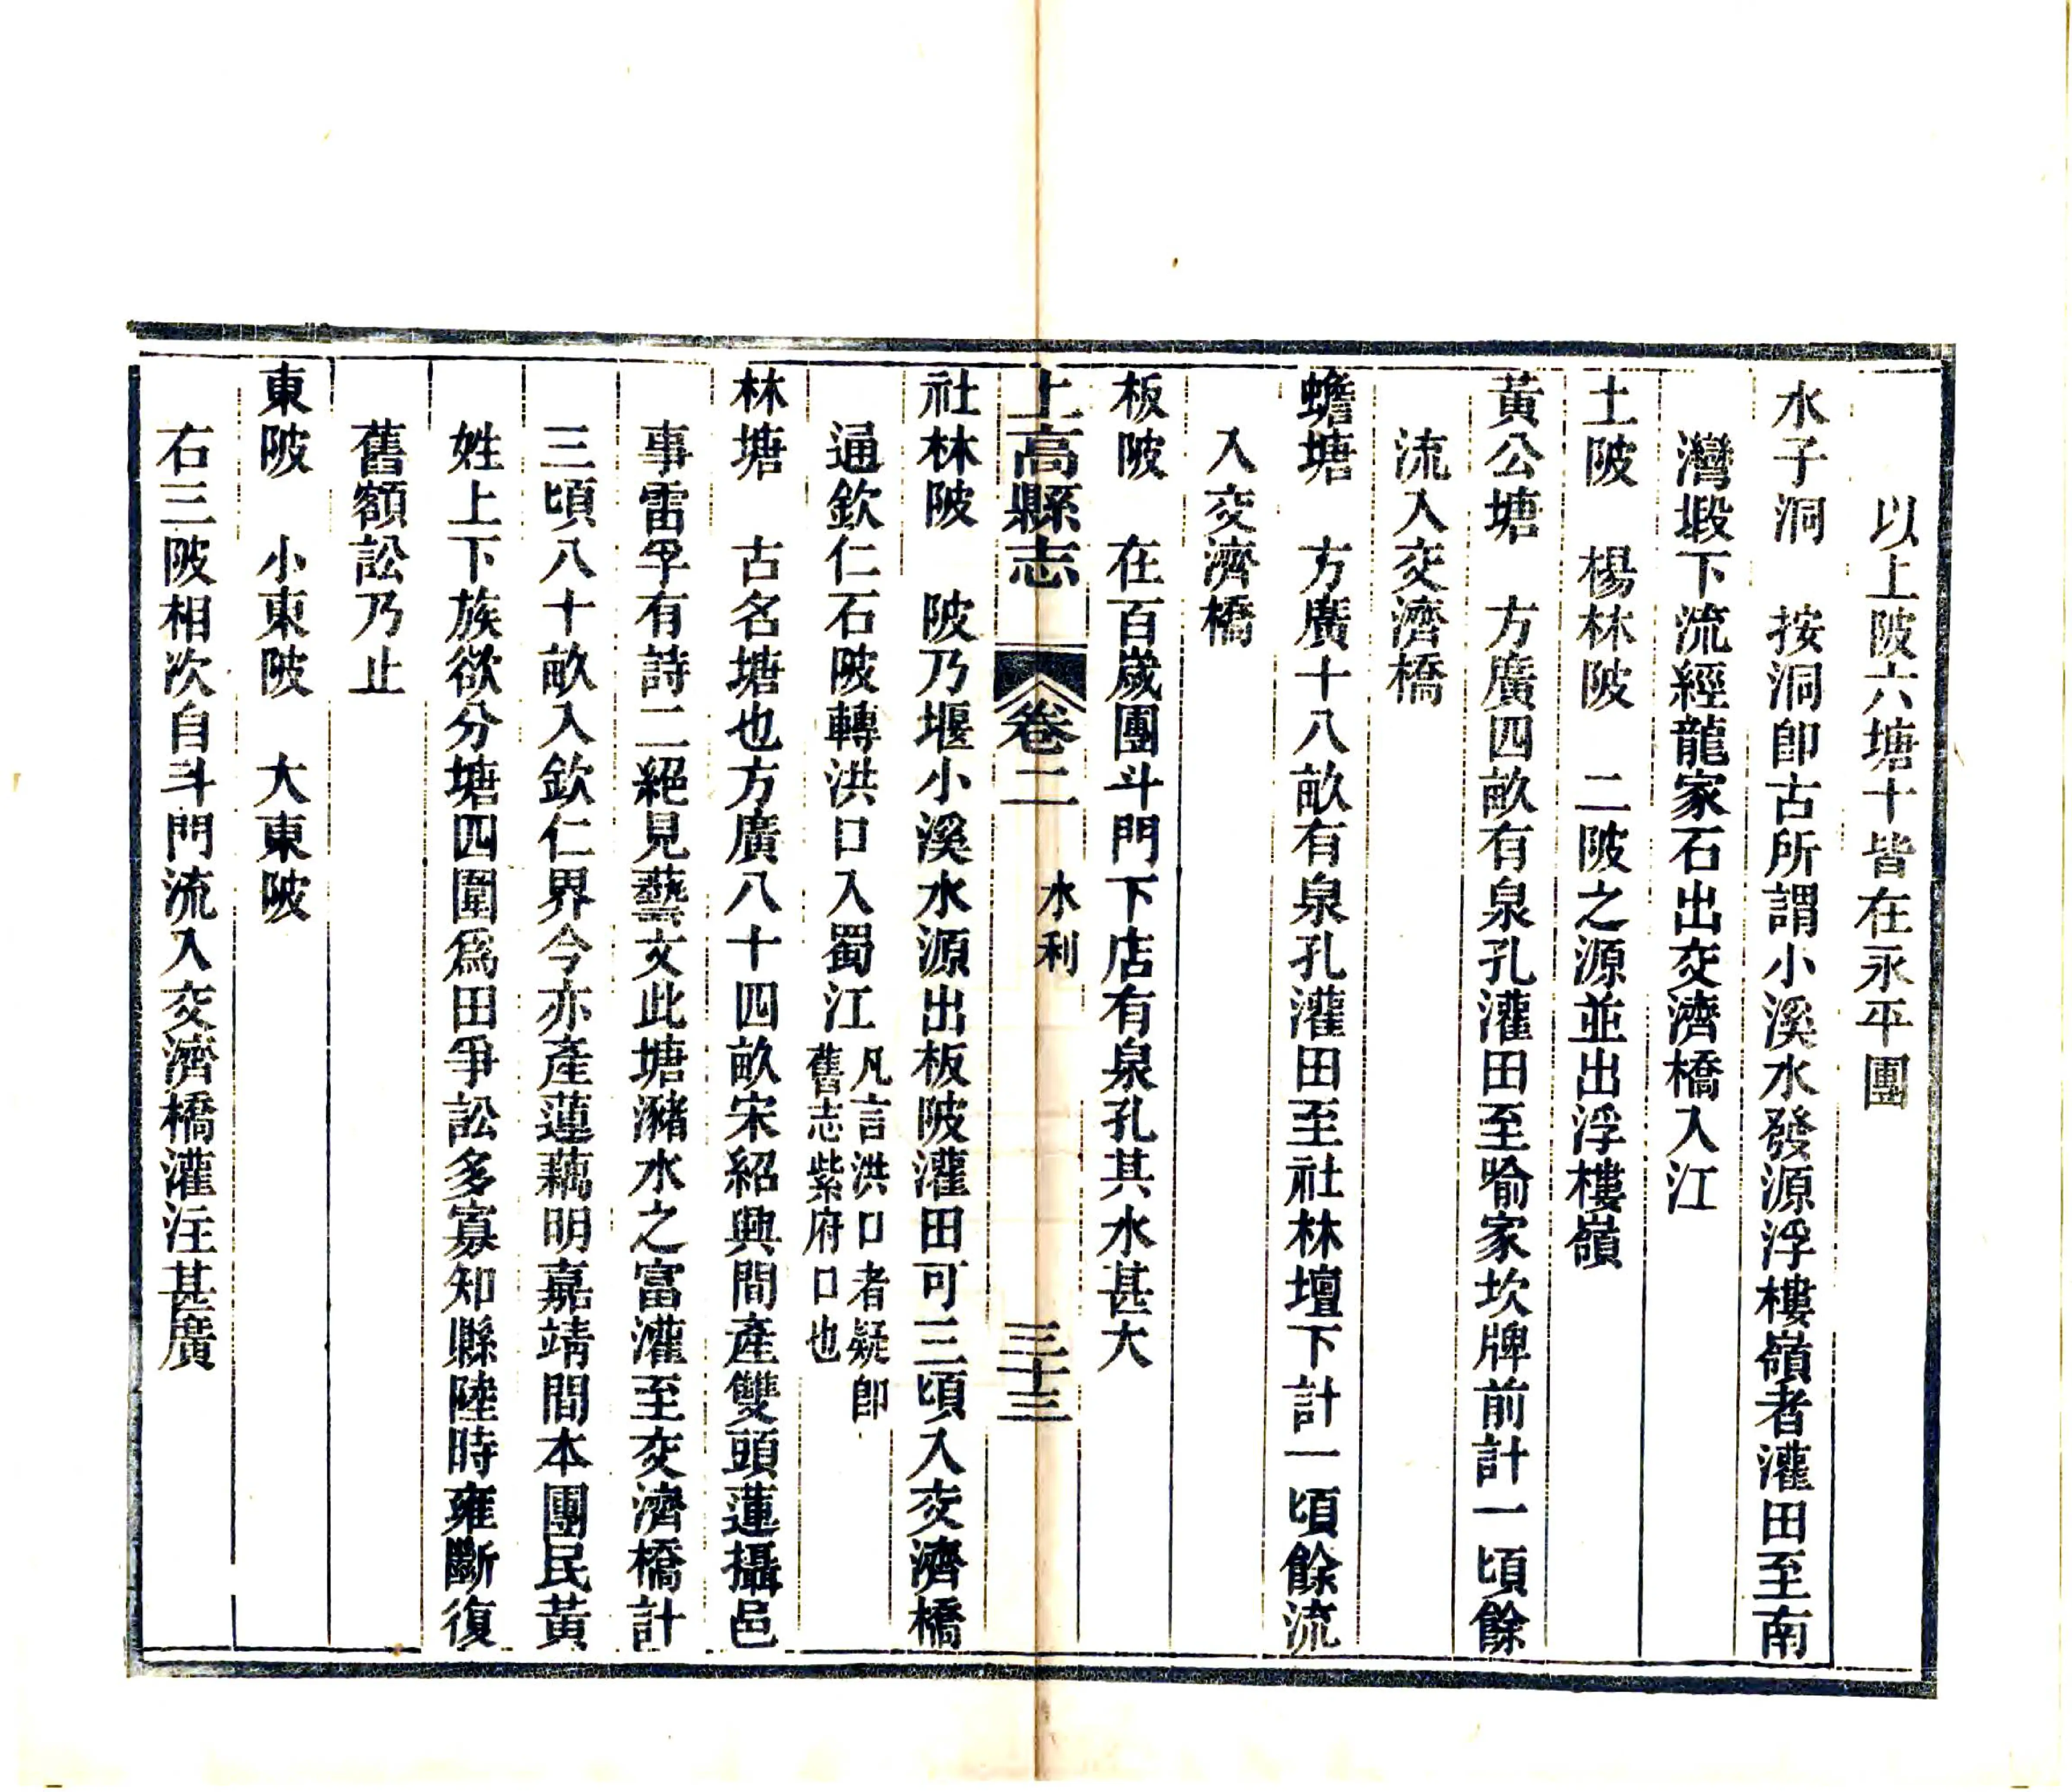 以上陂六塘十皆在永平團
水子洞　按洞卽古所謂小溪水發源浮樓嶺者灌田至南
灣塅下流經龍家石出交濟橋入江
土陂　楊林陂　二陂之源並出浮樓嶺
黃公塘　方廣四畝有泉孔灌田至喻家坎牌前計一頃餘
流入交濟橋
蟾塘　方廣十八畝有泉孔灌田至社林壇下計一頃餘流
入交濟橋
板陂　在百嵗團斗門下店有泉孔其水甚大
上高縣志　卷二　水利　三十三
社林陂　陂乃堰小溪水源出板陂灌田可三頃入交濟橋
通欽仁石陂轉洪口入蜀江
凡言洪口者疑卽
舊志紫府口也
林塘　古名塘也方廣八十四畝宋紹興間產雙頭蓮攝邑
事雷孚有詩二絕見藝文此塘瀦水之富灌至交濟橋計
三頃八十畝入欽仁界今亦產蓮藕明嘉靖間本團民黃
姓上下族欲分塘四圍爲田爭訟多寡知縣陸時雍斷復
舊額訟乃止
東陂　小東陂　大東陂
右三陂相次自斗門流入交濟橋灌注甚廣